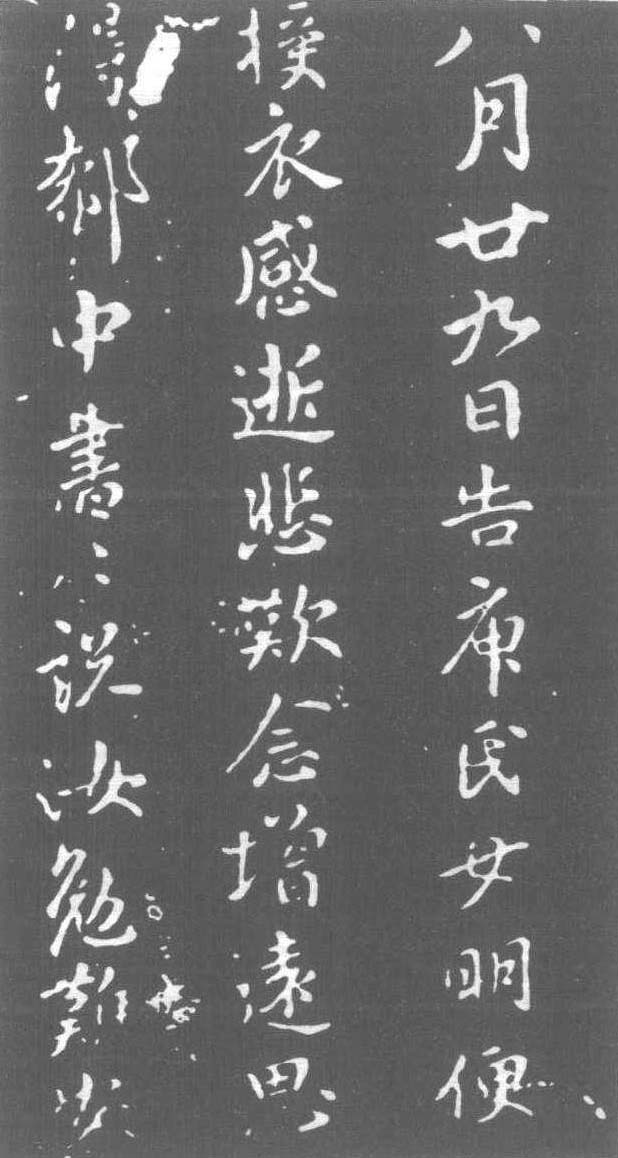 八月廿九日告庾氏女明便
授衣感逝悲歎念增遠思
得郗中書々說汝勉難安